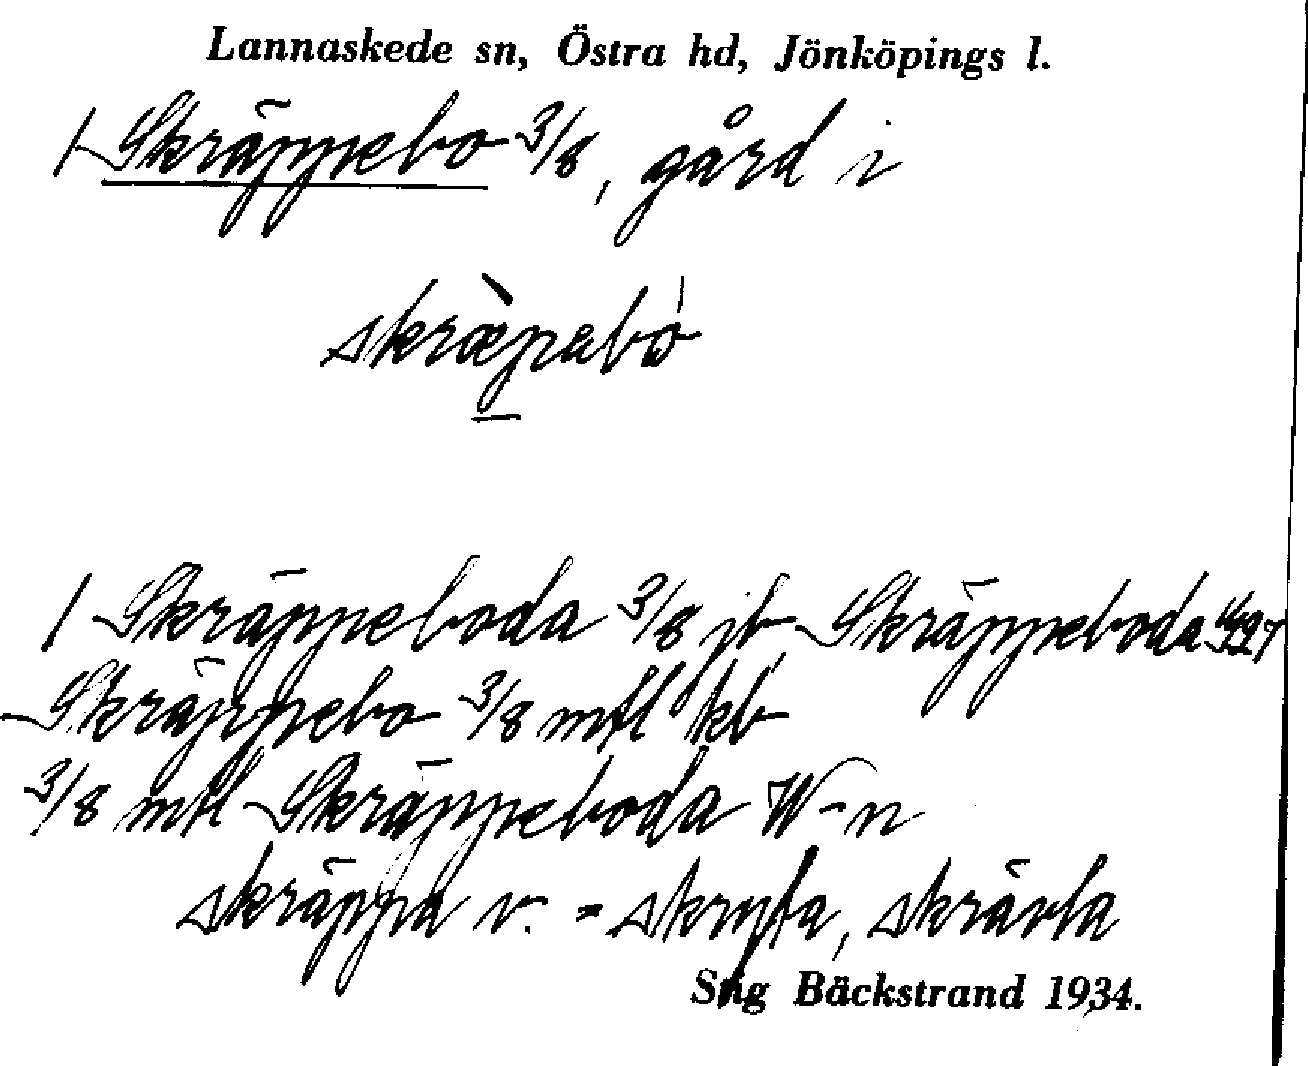 Lannaskede sn, Östra hd, Jönköpings l.
1 Skräppebo 3/8, gård i
skræ̀pabo
1 Skräppeboda 3/8 jb Skräppeboda
Skräppebo 3/8 mtl kb
3/8 mtl Skräppeboda W-n
skräppa v. = skryta, skrävla
Sng Bäckstrand 1934.